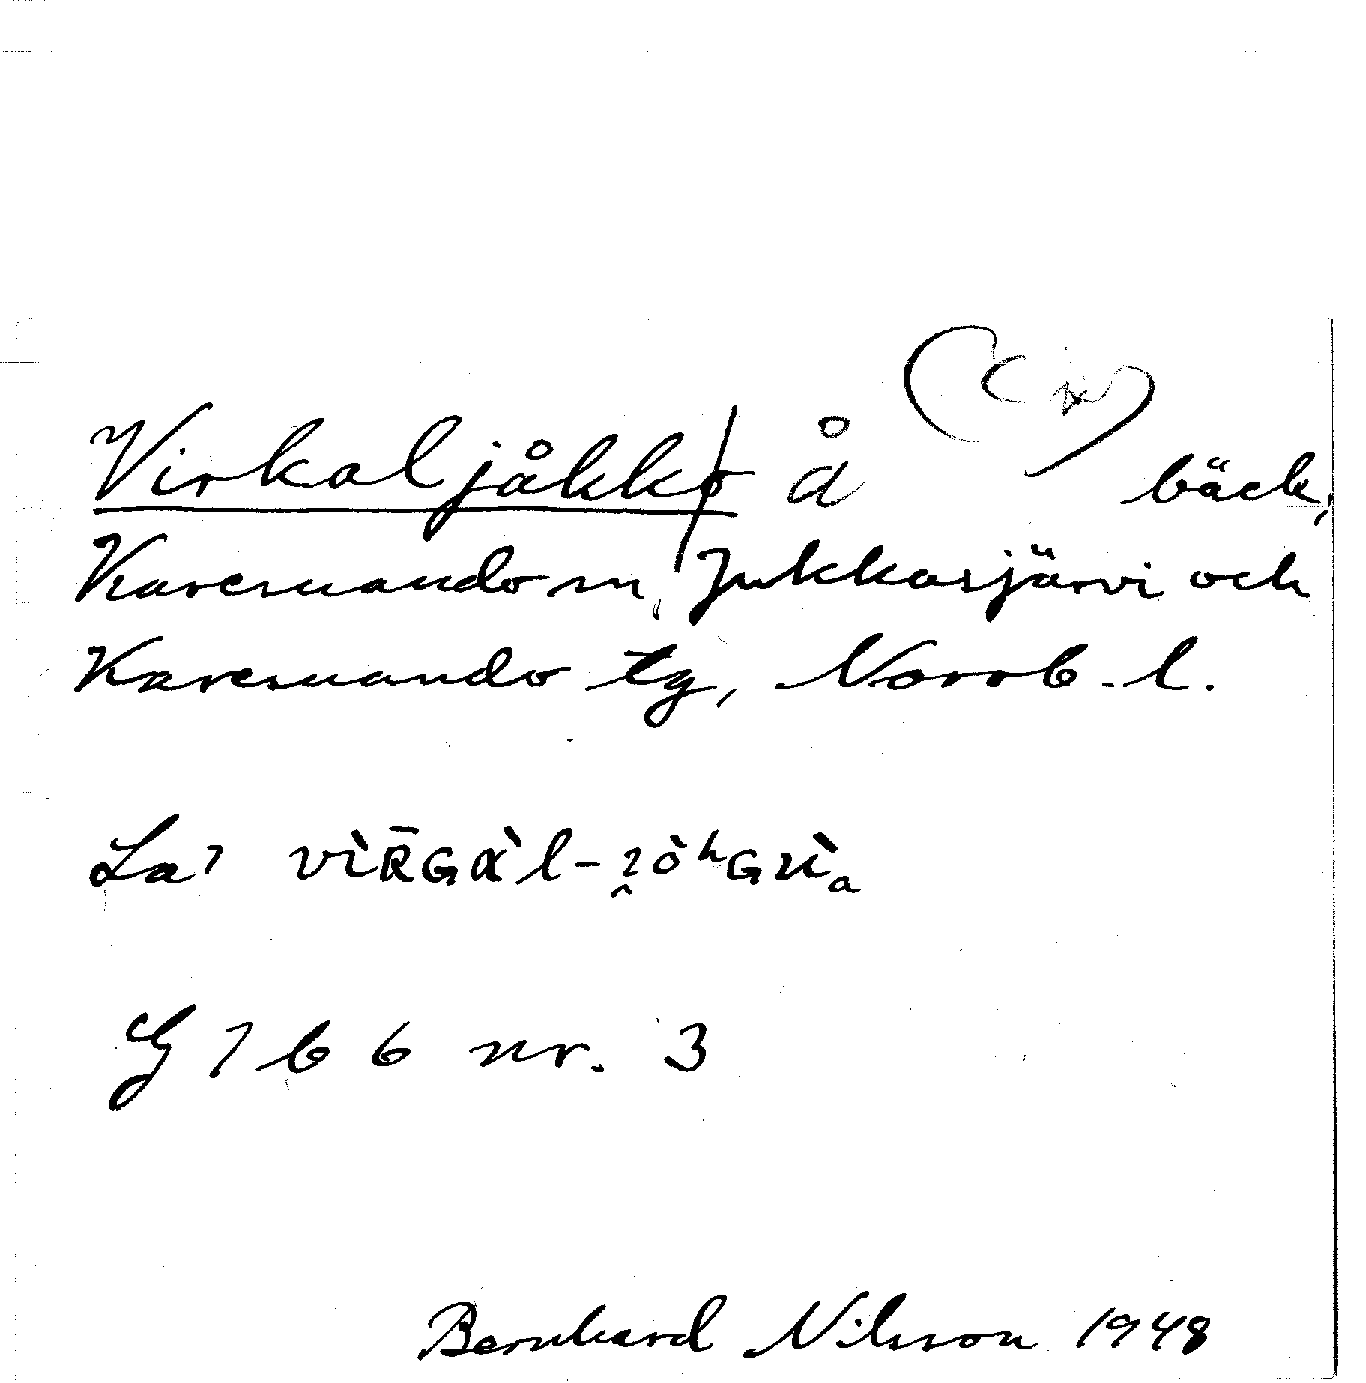 Virkaljåkko å bäck,
Karesuando sn, Jukkasjärvi och
Karesuando tg, Norrb. l.
La1 vìR̄Gɑ̀l-ʅ̭òʰGùₐ
G 1 b 6 nr. 3
Bernhard Nilsson 1948